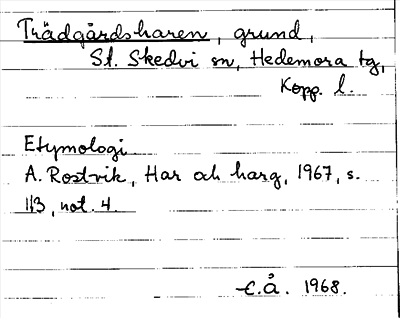 Trädgårdsharen, grund,
St. Skedvi sn, Hedemora tg,
Kopp. l.
Etymologi.
A. Rostvik, Har och harg, 1967, s.
113, not. 4.
C.Å. 1968.